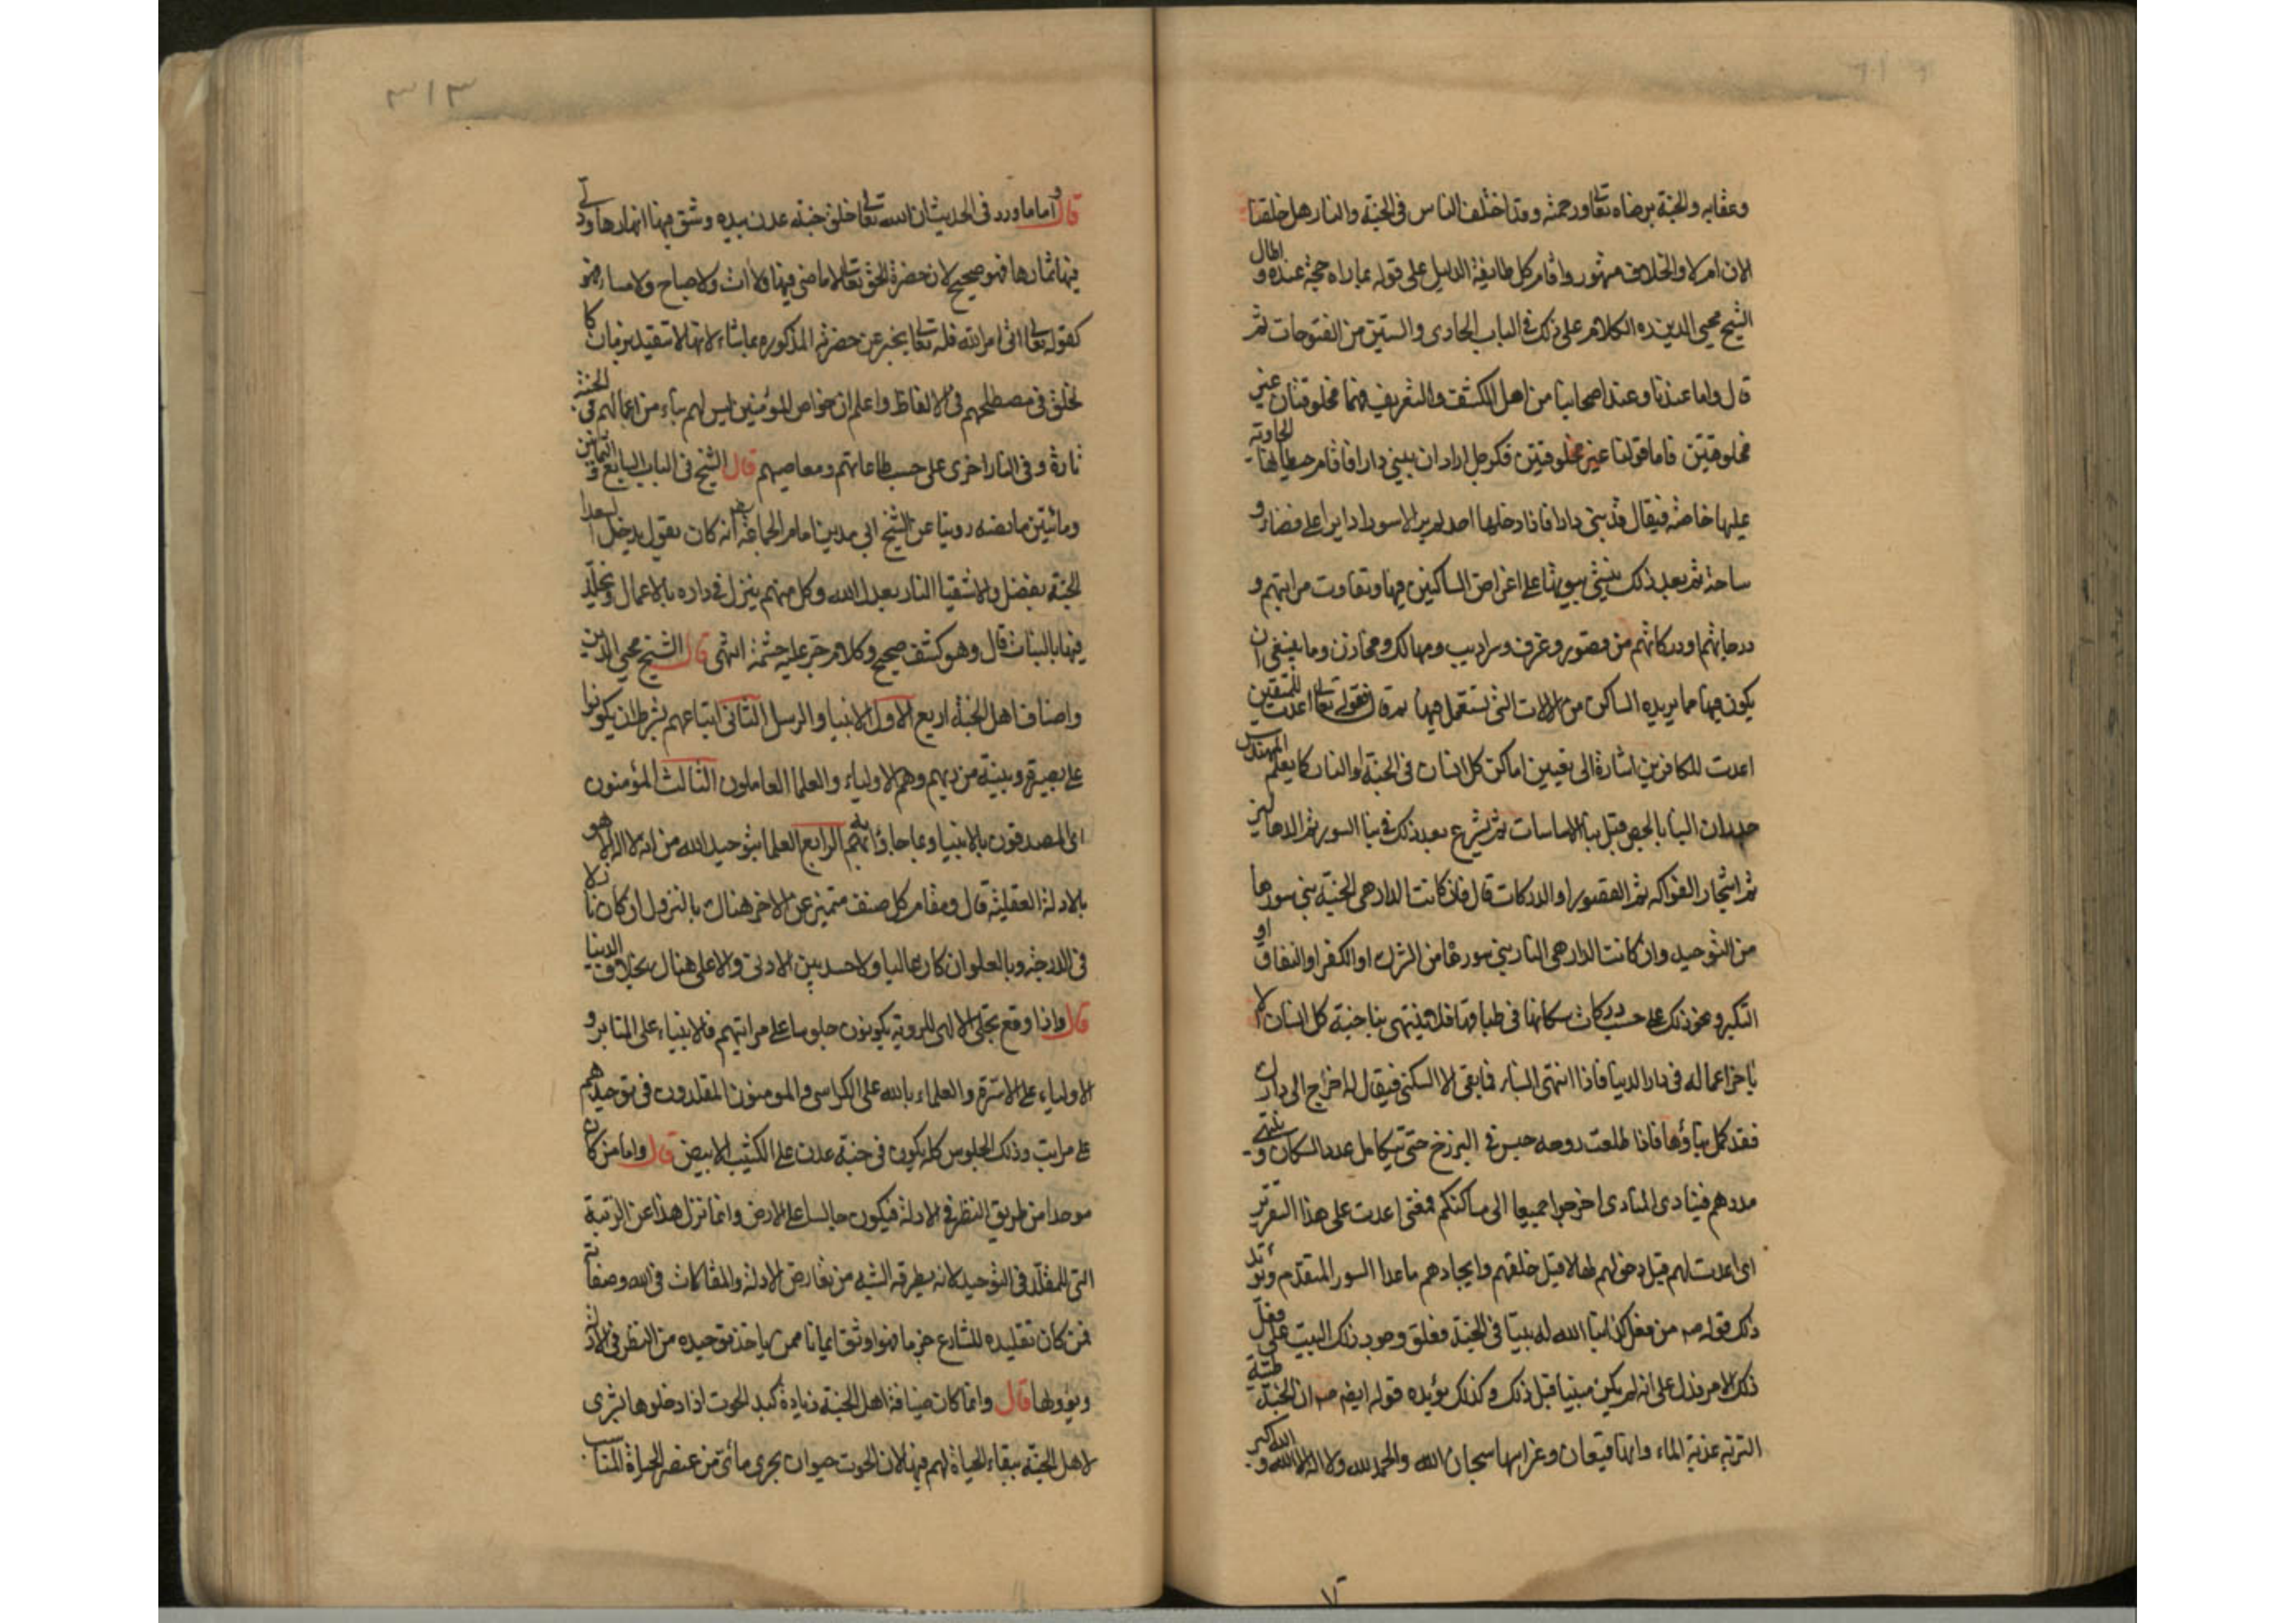 وعقابه والجنة برضاه تعالى ورحمته وقد اختلف الناس في الجنة والنار هل خلقتا
الان ام لا والخلاف مشهور واقام كل طايفة الدليل على قوله بما راه حجة عنده واطال
الشيخ محيي الدين الكلام على ذلك في الباب الحادى والستين من الفتوحات ثم
قال واما عندنا وعند اصحابنا من اهل الكشف والتعريف فهما مخلوقتان غير
مخلوقتين فاما قولنا غير مخلوقتين فكرجل اراد ان يبني دارا فاقام حيطانها الحاوية
عليها خاصة فيقال قد بنى دارا فاذا دخلها احد لم ير الا سورا دايرا على فضاء و
ساحة ثم بعد ذلك ينشئ بيوتها على اغراض الساكنين فيها وتفاوت مراتبهم و
درجاتهم او دركاتهم من قصور وغرف وسراديب ومهالك ومخازن وما ينبغى ان
يكون فيها مما يريده الساكن من الالات التى تستعمل فيها ثم قال فقوله تعالى اعدت للمتقين
اعدت للكافرين اشارة الى تعيين اماكن كل انسان في الجنة او النار كما يعلم المهندس
جدران البنا بالجص قبل بنا الاساسات ثم يشرع بعد ذلك في بنا السور ثم الدهاليز
ثم اشجار الفواكه ثم القصور او الدركات قال فان كانت الدار هى الجنة بنى سورها
من التوحيد وان كانت الدار هى النار بنى سورها من الشرك او الكفر او النفاق او
التكبر ونحو ذلك على حسب دركات سكانها في طباقها فلا ينتهى بنا جنة كل انسان الا
باخر اعماله فى دار الدنيا فاذا انتهى البناء فما بقى الا السكنى فيقال له اخراج الى دارك
فقد كمل بناؤها فاذا طلعت روحه حبس في البرزخ حتى يتكامل عدد السكان وينتهى
مددهم فينادى المنادى اخرجوا جميعا الى مساكنكم فمعنى اعدت على هذا التقرير
اى اعدت لهم قبل دخولهم لها لا قبل خلقهم وايجادهم ما عدا السور المتقدم ويؤيد
ذلك قوله صـ من فعل كذا بنا الله له بيتا في الجنة فعلق وجود ذلك البيت على فعل
ذلك الامر فدل على انه لم يكن مبنيا قبل ذلك وكذلك يؤيده قوله ايضا صـ ان الجنة طيبة
التربة عذبة الماء وانها قيعان وغراسها سبحان الله والحمد لله ولا اله الا الله والله اكبر
٣١٣
قال واما ما ورد فى الحديث ان الله تعالى خلق جنة عدن بيده وشق فيها انهارها ودلى
فيها ثمارها فهو صحيح لان حضرة الحق تعالى لا ماضى فيها ولا ات ولا صباح ولا مسا
كقوله تعالى اتى امر الله فله تعالى يخبر عن حضرته المذكورة بما شاء لانها لا تتقيد بزمان كا
لخلق فى مصطلحهم فى الالفاظ واعلم ان خواص المؤمنين ليس لهم بناء من اعمالهم فى الجنة
تارة وفى النار اخرى على حسب طاعاتهم ومعاصيهم قال الشيخ فى الباب السابع والثمانين
ومائتين ما نصه روينا عن الشيخ ابي مدين امام الجماعة انه كان يقول يدخل السعدا
الجنة بفضل والاشقيا النار بعدل الله وكل منهم ينزل فى داره بالاعمال ويخلد
فيها بالنيات قال وهو كشف صحيح وكلام حر عليه حشمة انتهى قال الشيخ محيى الدين
واصناف اهل الجنة اربع الاول الانبيا والرسل الثانى اتباعهم بشرط ان يكونوا
على بصيرة وبينة من ربهم وهم الاولياء والعلما العاملون الثالث المؤمنون
اى المصدقون بالانبيا وبما جاؤا به الرابع العلما بتوحيد الله من انه لا اله الا هو
بالادلة العقلية قال ومقام كل صنف متميز عن الاخر هناك بالنزول ان كان نازلا
فى الدرجة وبالعلو ان كان عاليا ولا حسد بين الادنى والاعلى هناك بخلاف الدنيا
قال واذا وقع تجلى الالهى للروية يكونون جلوسا على مراتبهم فالانبياء على المنابر و
الاولياء على الاسرة والعلماء بالله على الكراسى والمومنون المقلدون فى توحيدهم
على مراتب وذلك الجلوس كله يكون فى جنة عدن على الكثيب الابيض قال واما من كان
موحدا من طريق النظر في الادلة فيكون جالسا على الارض وانما نزل هذا عن الرتبة
التى للمقلد فى التوحيد لانه يطرقه الشبه من تعارض الادلة والمقالات فى الله وصفاته
فمن كان تقليده للشارع جزما فهو اوثق ايمانا ممن ياخذ توحيده من النظر فى الادلة
ويؤولها قال وانما كان ضيافة اهل الجنة زيادة كبد الحوت اذا دخلوها بشرى
لاهل الجنة ببقاء الحياة لهم فيها لان الحوت حيوان بحرى مائى من عنصر الحياة المناسب